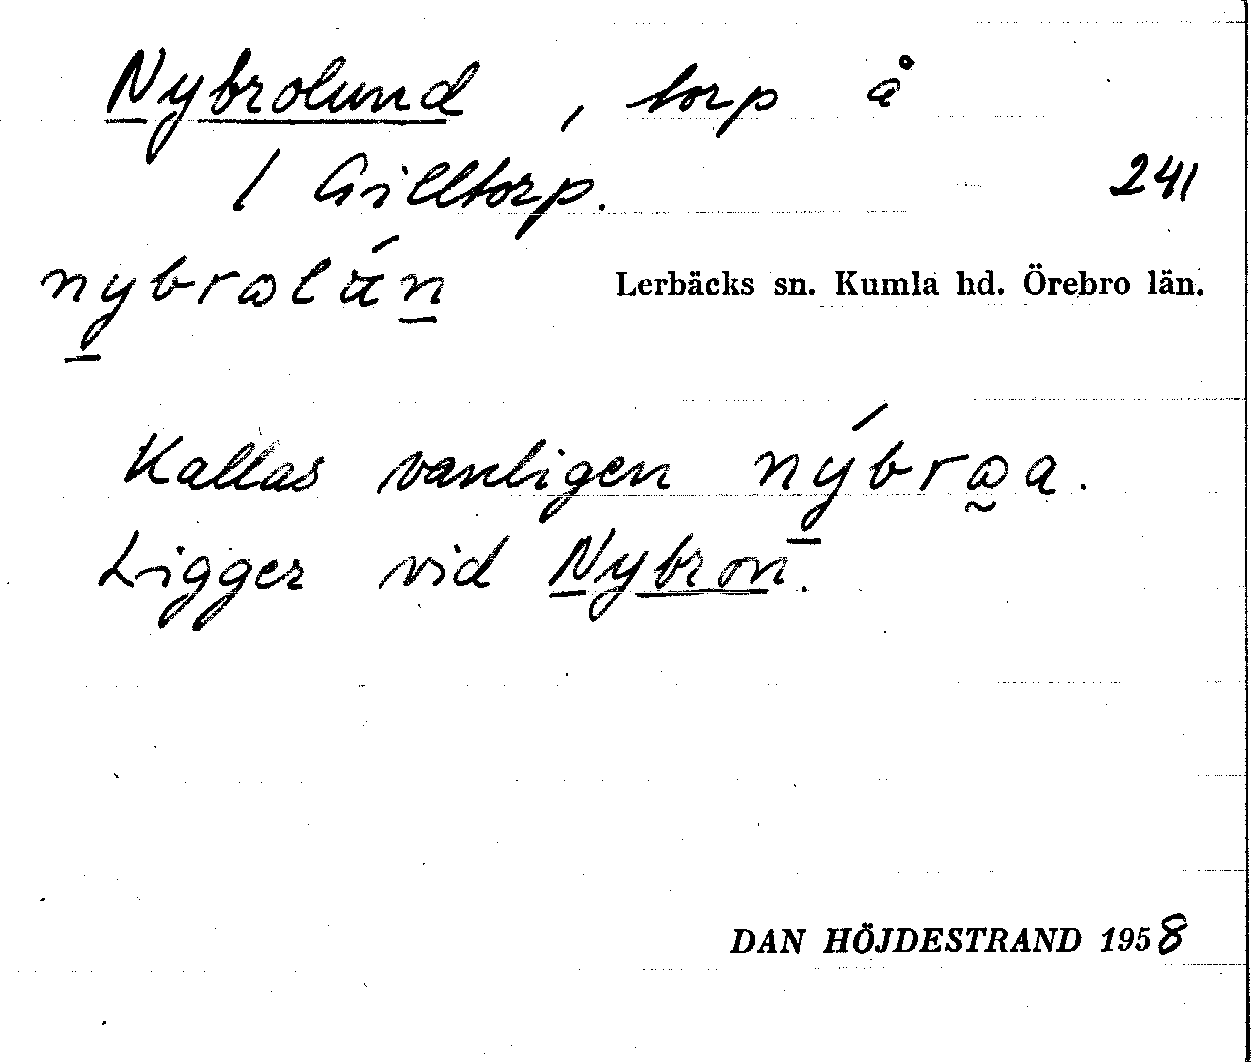 Nybrolund, torp å
1 Gilltorp.
241
nybrωlún
Lerbäcks sn. Kumla hd. Örebro län.
Kallas vanligen nýbrωa.
Ligger vid Nybron.
DAN HÖJDESTRAND 1958